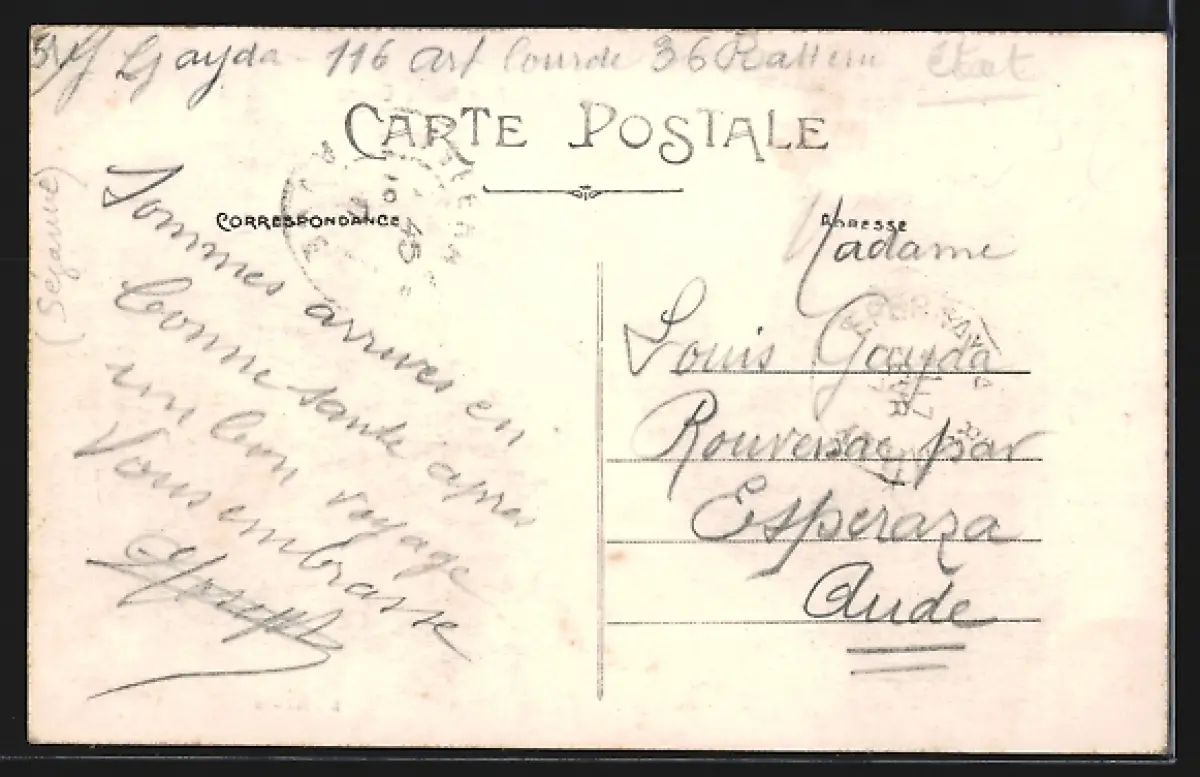 Gayda - 116 art lourde 36 Batterie
CARTE POSTALE
CORRESPONDANCE
ADRESSE
(Sézanne)
Sommes arrives en
bonne sante apres
un bon voyage
Vous embrasse
Madame
Louis Gayda
Rouvenac par
Esperaza
Aude
EPERNAY